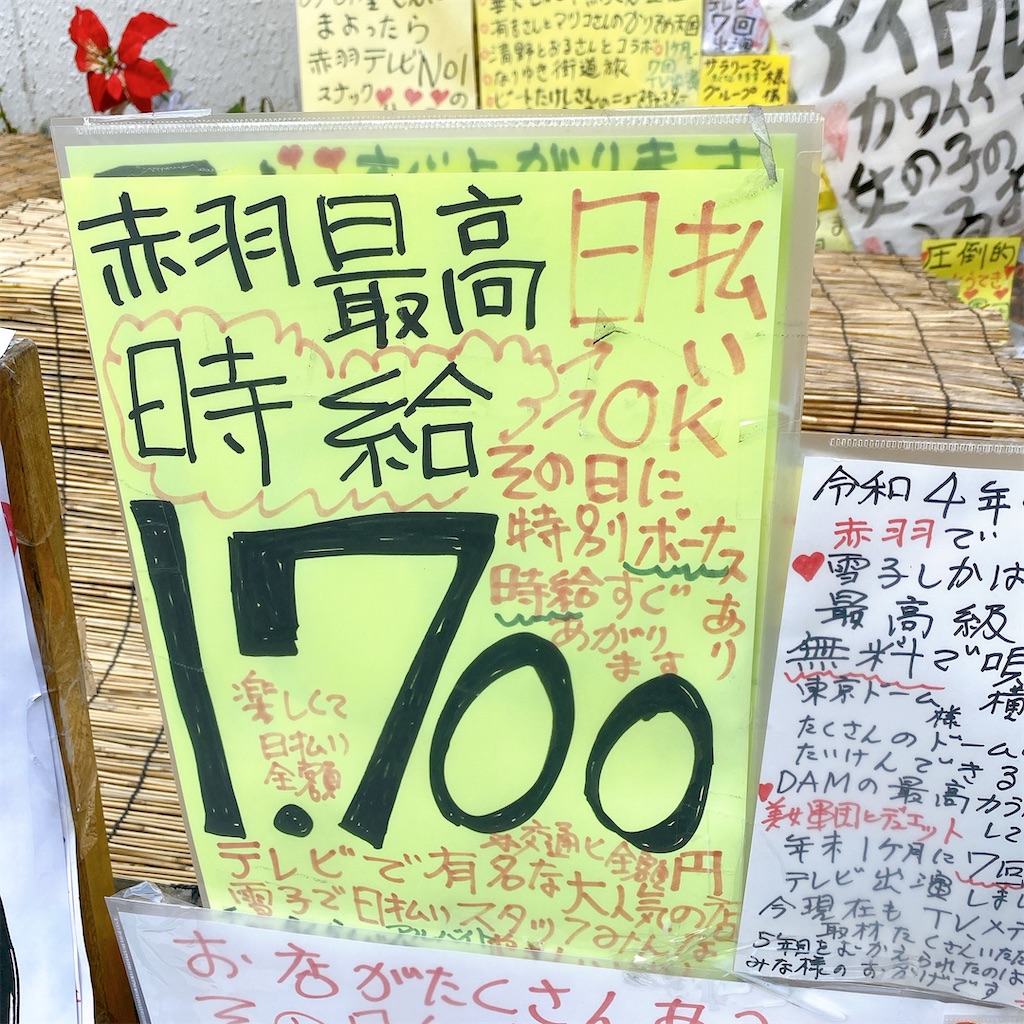 まよったら
赤羽テレビNO1
スナック♥♥♥の
清野とおるさんとコラボ
なりゆき街道旅
ビートたけしさんのニュースキャスター
テレビ
7回
出演
サラリーマン
グループ様
アイドル
カワイイ
女の子の
いる
圧倒的
赤羽最高
時給
1.700
円
日払い
OK
その日に
特別ボーナスあり
時給すぐ
あがり
ます
楽しくて
日払い
全額
交通ヒ全額
テレビで有名な大人気の店
雪子で日払いスタッフみんな
アルバイト
令和4年
赤羽でい
♥雪子しかは
最高級
無料で唄
東京ドーム様
横
たくさんのドーム
たいけんできる
DAMの最高カラ
♥美女軍団とデュエット
して
年末1ヶ月に7回
テレビ出演しまし
今現在もTV.メデ
取材たくさんいただ
5年目をむかえられたのは
みな様のおかげです
お店がたくさん